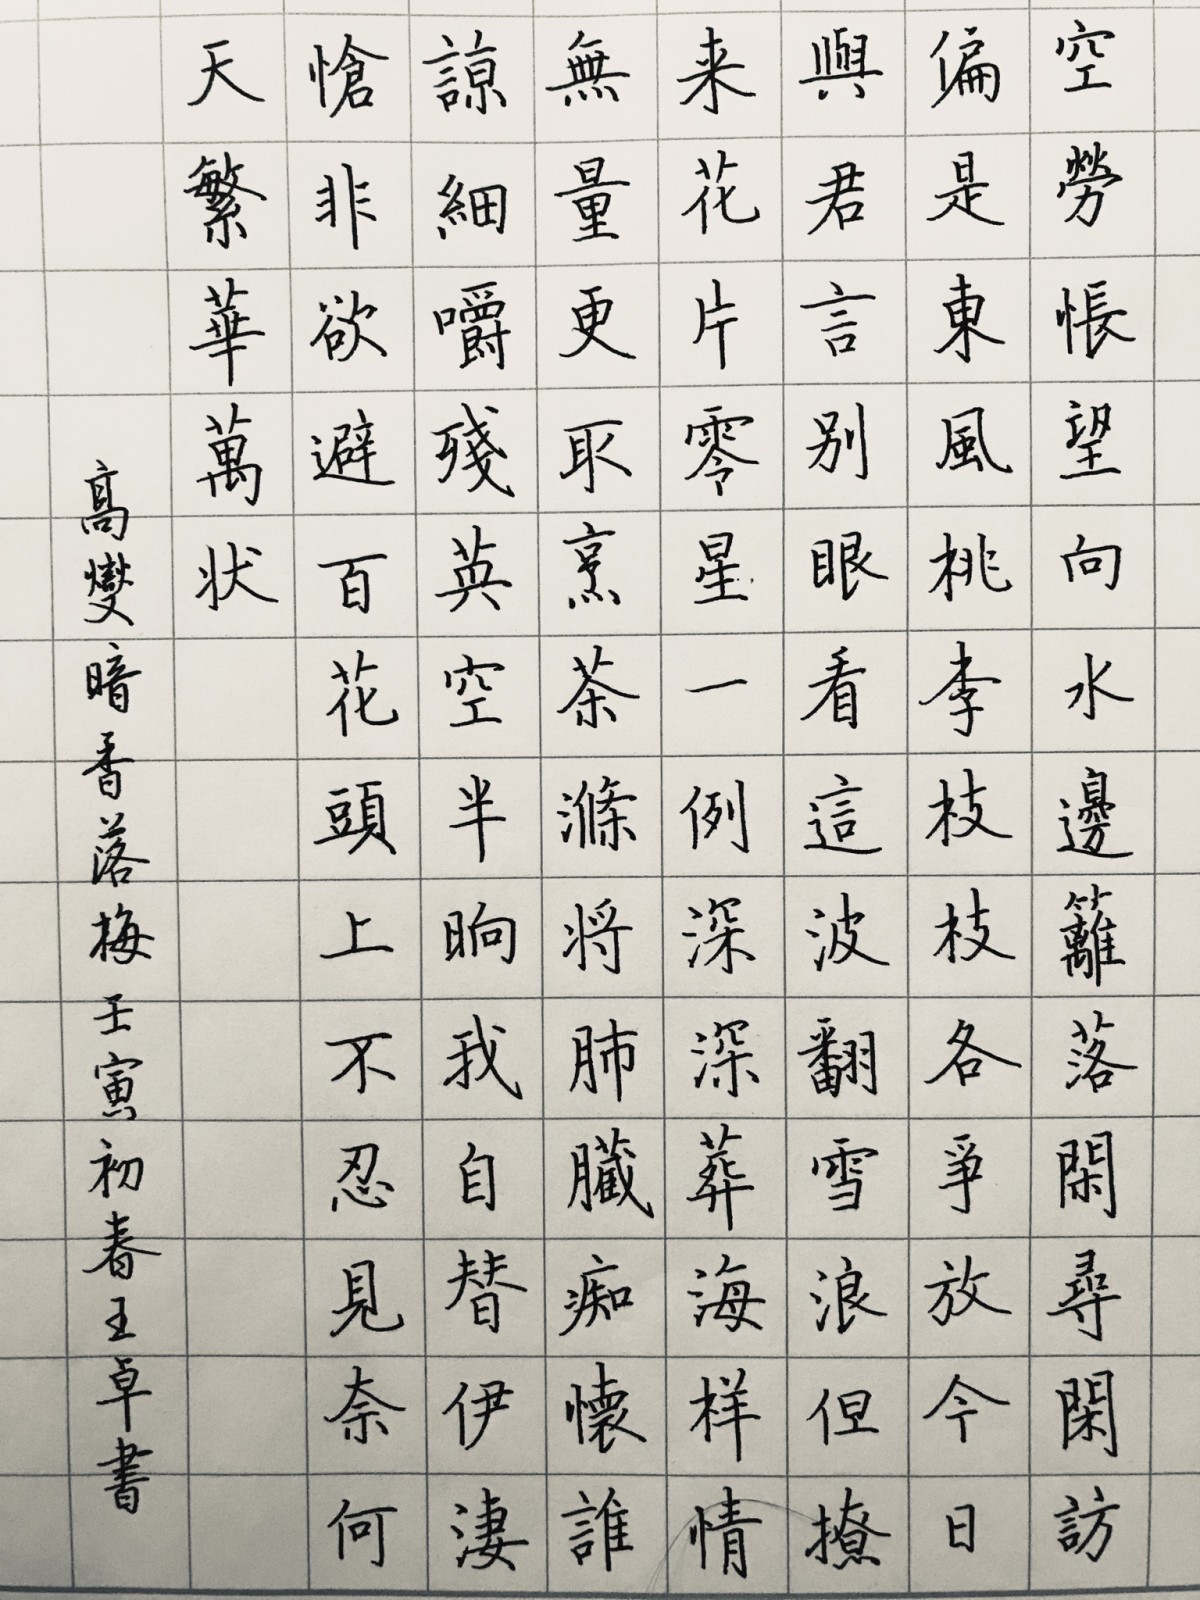 空勞悵望向水邊籬落閑尋閑訪
偏是東風桃李枝枝各爭放今日
與君言别眼看這波翻雪浪但撩
来花片零星一例深深葬海样情
無量更取烹茶滌将肺臓痴懷誰
諒細嚼殘英空半晌我自替伊淒
愴非欲避百花頭上不忍見奈何
天繁華萬状
高燮暗香落梅壬寅初春王卓書